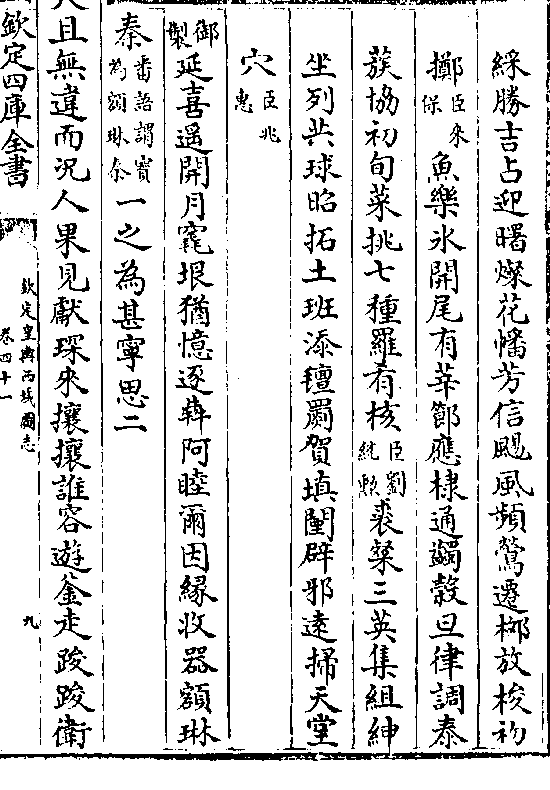 綵勝吉占迎曙燦花幡芳信颺風頻鶯遷柳放梭初
擲臣來保魚樂氷開尾有莘節應棣通蠲穀旦律調泰
蔟協初旬菜挑七種羅肴核臣劉統勲裘粲三英集組紳
坐列共球昭拓土班添氊罽賀填闉辟邪遠掃天堂
穴臣兆惠
御製延喜遥開月竁垠猶憶逐犇阿睦爾因緣收器額琳
秦畨語謂寳為額琳沁一之為甚寧思二
天且無違而况人果見獻琛來攘攘誰容遊釜走踆踆衛
欽定四庫全書
欽定皇輿西域圖志
卷四十一
九